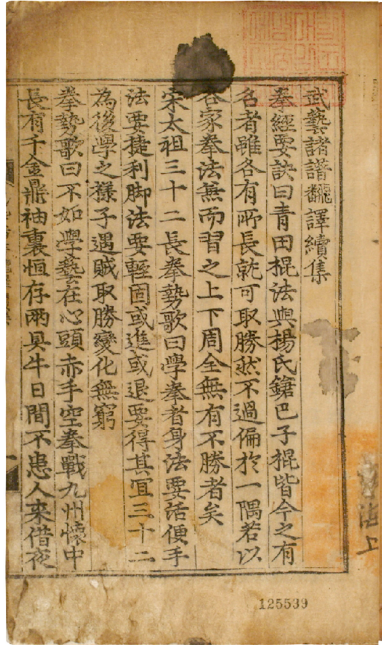 武藝諸譜飜譯續集
拳經要訣曰青田棍法與楊氏鎗巴子棍皆今之有
名者雖各有所長就可取勝然不過偏於一隅若以
各家拳法無而習之上下周全無有不勝者矣
宋太祖三十二長拳勢歌曰學拳者身法要活便手
法要捷利脚法要輕固或進或退要得其宜三十二
為後學之樣子遇賊取勝變化無窮
拳勢歌曰不如學藝在心頭赤手空拳戰九州懷中
長有千金鼎袖裏恒存兩具牛日間不患人來借夜
上
125539